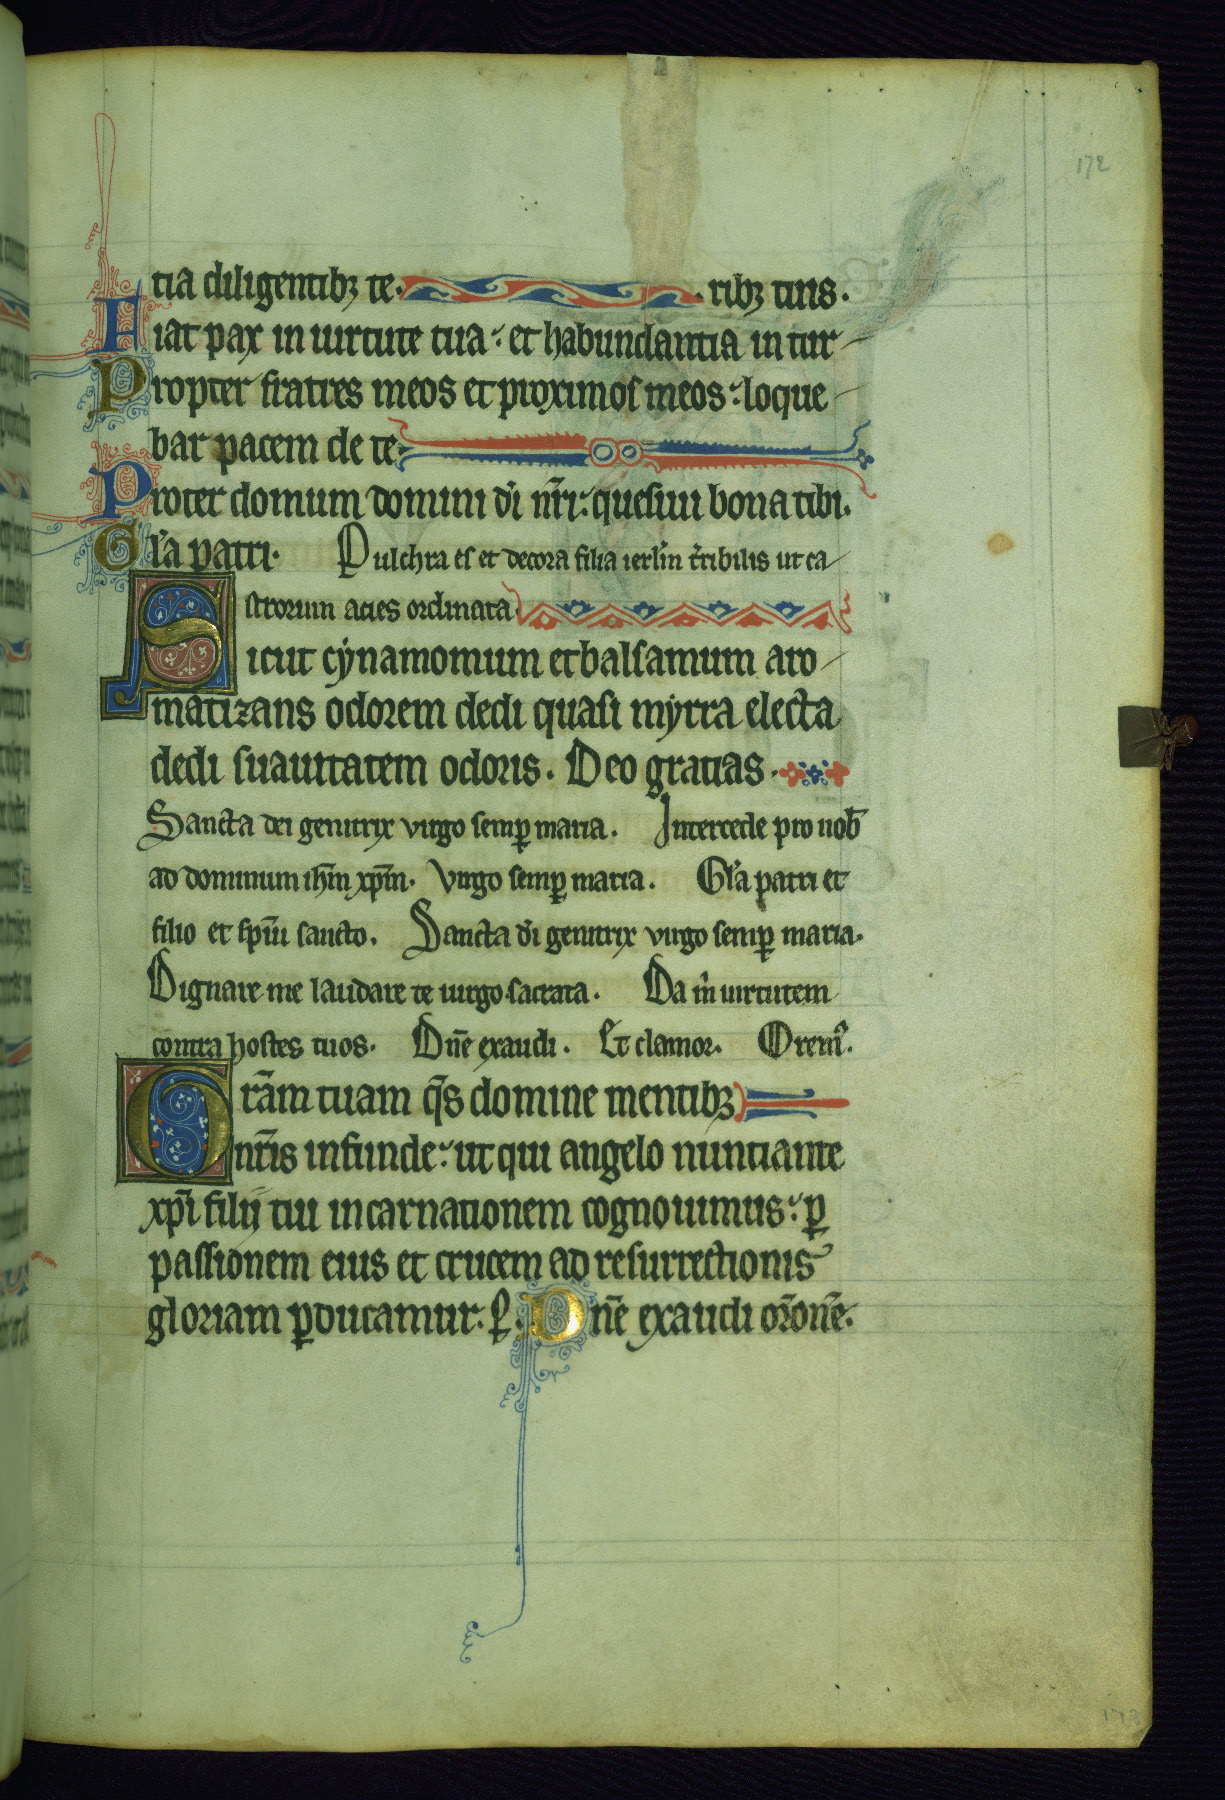 172
tia diligentibꝫ te. ribꝫ tuis.
Fiat pax in uirtute tua: et habundantia in tur
Propter fratres meos et proximos meos: loque
bar pacem de te
Proter domum domini dī nr̄i: quesiui bona tibi.
Gl'a patri. Pulchra es et decora filia ierl'm t̄ribilis ut ca
strorum acies ordinata
Sicut cynamomum et balsamum aro
matizans odorem dedi quasi myrra electa
dedi suauitatem odoris. Deo gratias.
Sancta dei genitrix virgo semꝑ maria. Intercede pro nob̄
ad dominum ih̄m xp̄m. Virgo semꝑ maria. Gl'a patri et
filio et sp̄ui sancto. Sancta dī genitrix virgo semꝑ maria.
Dignare me laudare te uirgo sacrata. Da m̄ uirtutem
contra hostes tuos. Dn̄e exaudi. Et clamor. Orem᷒.
Gr̄am tuam q̄s domine mentibꝫ
nr̄is infunde: ut qui angelo nuntiante
xp̄i filij tui incarnationem cognouimus: ꝑ
passionem eius et crucem ad resurrectionis
gloriam ꝑducamur. P̱. Dn̄e exaudi or̄one̅.